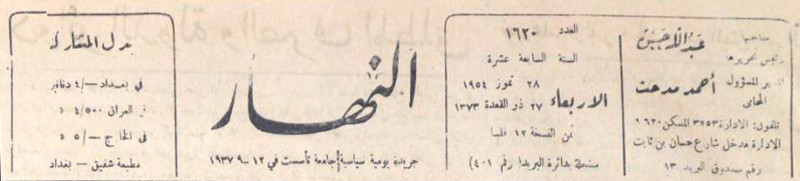 صاحبها
رئيس تحريرها
عبد الله حسن
المدير المسؤول
المحامي
أحمد مدحت
تلفون: الادارة ٣٢٥٣ المسكن ٩٦٢٠
الادارة مدخل شارع حسان بن ثابت
رقم صندوق البريد ١٣
العدد ١٦٢٠
السنة السابعة عشرة
الاربعاء
٢٨ تموز ١٩٥٤
٢٧ ذو القعدة ١٣٧٣
ثمن النسخة ١٢ فلسا
مسجلة بدائرة البريد ( رقم ٤٠١ )
النهار
جريدة يومية سياسية جامعة تأسست في ١٢ ـ ٩ ١٩٣٧
بدل الاشتراك
في بغداد ـ/٤ دنانير
في العراق ٤/٥٠٠ د
في الخارج ـ/٥ د
مطبعة شفيق ـ بغداد